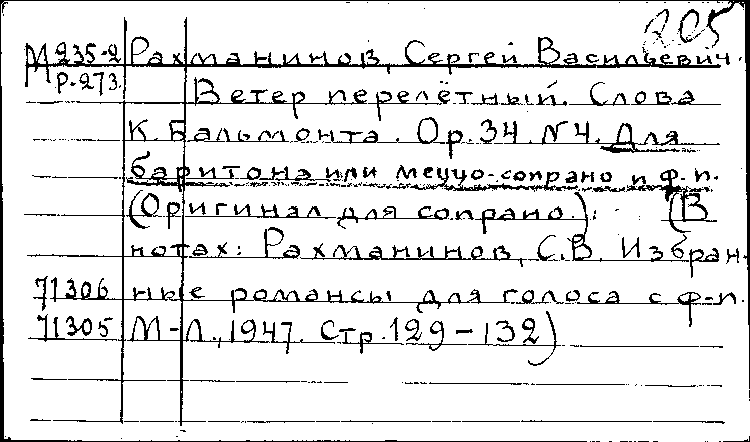 205
М235-2 Рахманинов, Сергей Васильевич.
Р-273 Ветер перелётный. Слова
К. Бальмонта. Ор.34. №4. Для
баритона или меццо-сопрано и ф.п.
(Оригинал для сопрано.). (В
нотах: Рахманинов, С.В. Избран-
71306 ные романсы для голоса с ф-п.
71305 М-Л., 1947. Стр.129-132)